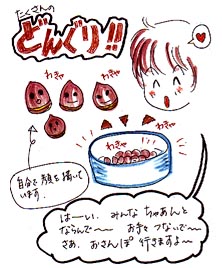 たくさんの
どんぐり!!
わきゃ
わきゃ
わきゃ
わきゃ
自分で顔を描いて
います.
はーい. みんな ちゃあんと
ならんで〜 お手々 つないで〜
さあ、おさんぽ 行きますよ〜